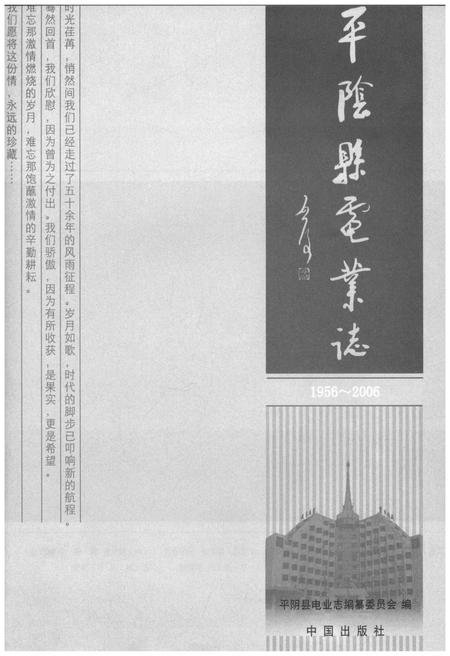 平陰縣電業誌
1956～2006
平阴县电业志编纂委员会 编
中国出版社
时光荏苒，悄然间我们已经走过了五十余年的风雨征程。岁月如歌，时代的脚步已叩响新的航程。
蓦然回首，我们欣慰，因为曾为之付出。我们骄傲，因为有所收获，是果实，更是希望。
难忘那激情燃烧的岁月，难忘那饱蘸激情的辛勤耕耘。
我们愿将这份情，永远的珍藏……